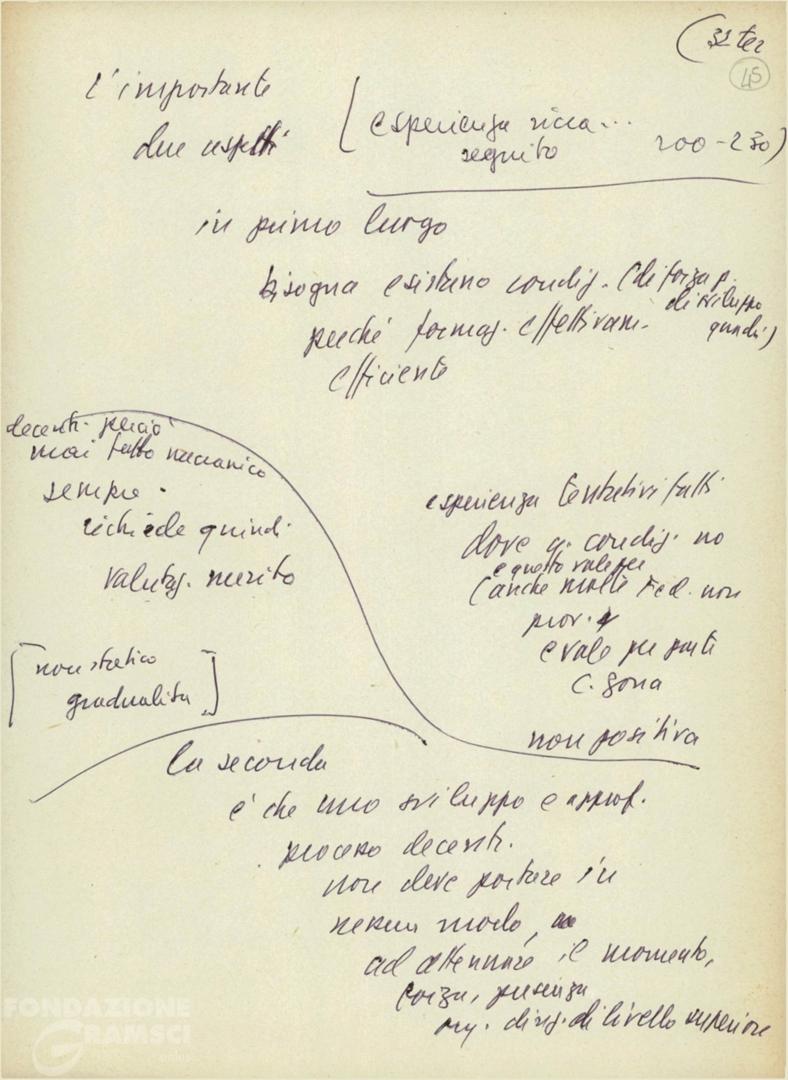 (32 ter
45
l'importante
due aspetti
[esperienza ricca...
seguito 200-250)
in primo luogo
bisogna esistano condiz. (di forza p.
di sviluppo
quadri)
perché formaz. effettivam.
efficiente
decentr. perciò
mai fatto meccanico
sempre.
richiede quindi
valutaz. merito
[non statico
gradualità]
esperienza tentativi fatti
dove q. condiz. no
e questo vale per
(anche molte Fed. non
prov.
e vale per parte
C. Zona
non positiva
la seconda
è che uno sviluppo e approf.
processo decentr.
non deve portare in
nessun modo,
ad attenuare il momento,
forza, presenza
org. dirig. di livello superiore
FONDAZIONE
GRAMSCI